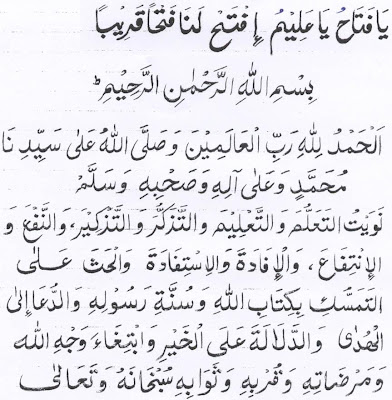 يَا فَتَاحُ يَا عَلِيْمُ إِفْتَحْ لَنَا فَتْحًا قَرِيْبًا
بِسْمِ اللهِ الرَّحْمٰنِ الرَّحِيْمِ
اَلْحَمْدُ لِلّٰهِ رَبِّ الْعَالَمِيْنَ وَصَلَّى اللهُ عَلَى سَيِّدِنَا
مُحَمَّدٍ وَعَلَى آلِهِ وَصَحْبِهِ وَسَلَّمْ
نَوَيْتُ التَّعَلُّمَ وَالتَّعْلِيْمَ وَالتَّذَكُّرَ وَالتَّذْكِيْرَ، وَالنَّفْعَ وَ
الْإِنْتِفَاعَ، وَالْإِفَادَةَ وَالْإِسْتِفَادَةَ وَالْحَثَّ عَلَى
التَّمَسُّكِ بِكِتَابِ اللهِ وَسُنَّةِ رَسُوْلِهِ وَالدُّعَا إِلَى
الْهُدَى وَالدَّلَالَةَ عَلَى الْخَيْرِ وَابْتِغَاءَ وَجْهِ اللهِ
وَمَرْضَاتِهِ وَقُرْبِهِ وَثَوَابِهِ سُبْحَانَهُ وَتَعَالَى